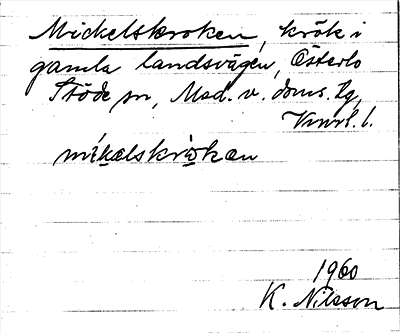 Mickelskroken, krök i
gamla landsvägen, Österlo
Stöde sn, Med. v. doms. tg,
Vnrl. l.
mikælskrωkæn
1960
K. Nilsson